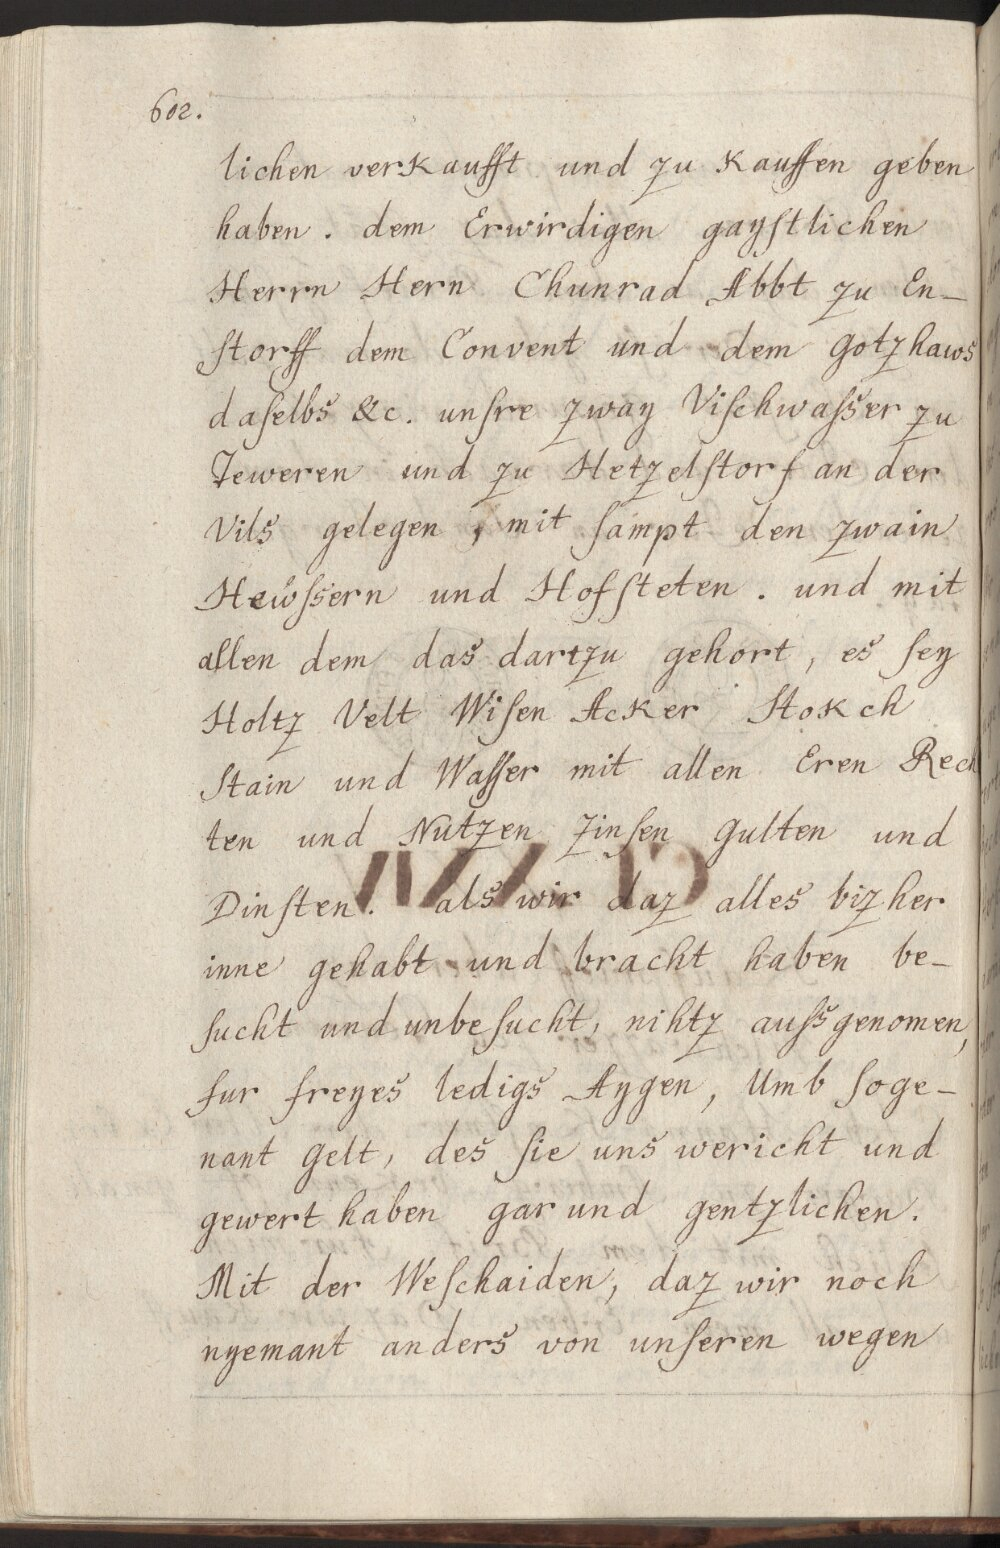 602.
lichen verkaufft und zu kauffen geben
haben. dem Erwirdigen gaystlichen
Herrn Hern Chunrad Abbt zu En-
storff dem Convent und dem gotzhaws
daselbs &c. unsre zway Vischwasser zu
Teweren und zu Hetzelstorf an der
Vils gelegen, mit sampt den zwain
Hewssern und Hofsteten. und mit
allen dem das dartzu gehort, es sey
Holtz Velt Wisen Acker Stokch
Stain und Wasser mit allen Eren Rech
ten und Nutzen Zinsen gulten und
Dinsten. als wir daz alles bizher
inne gehabt und bracht haben be-
sucht und unbesucht, nihtz aussgenomen,
fur freyes ledigs Aygen, Umb soge-
nant gelt, des sie uns wericht und
gewert haben gar und gentzlichen.
Mit der Weschaiden, daz wir noch
nyemant anders von unseren wegen